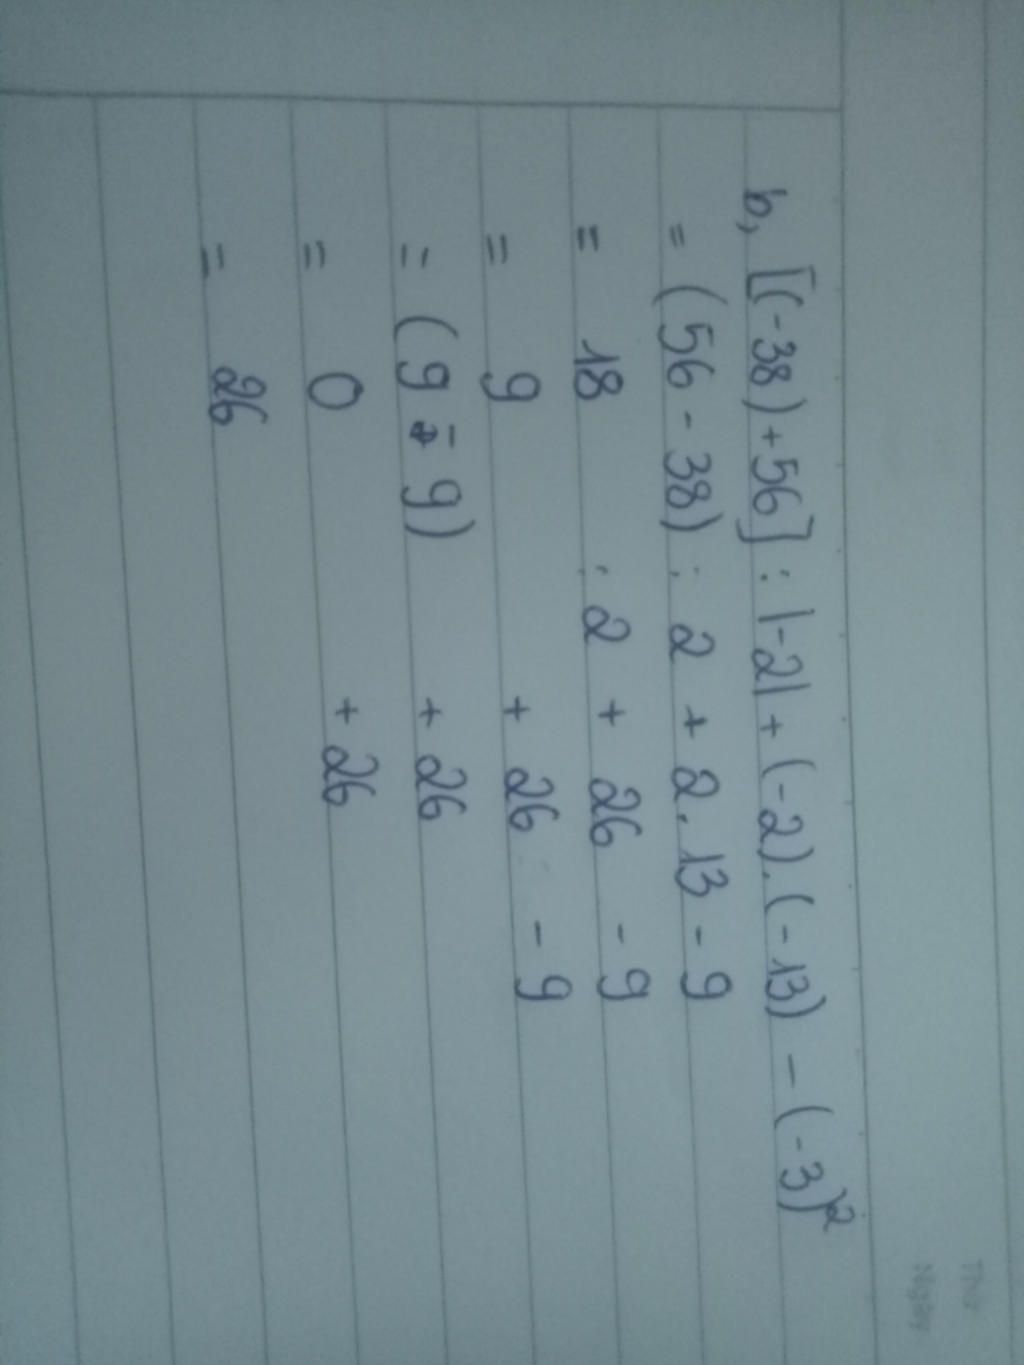 Thứ
Ngày
b, [(-38)+56] : |-2| + (-2).(-13) - (-3)²
= (56 - 38) : 2 + 2.13 - 9
= 18 : 2 + 26 - 9
= 9 + 26 - 9
= (9 - 9) + 26
= 0 + 26
= 26